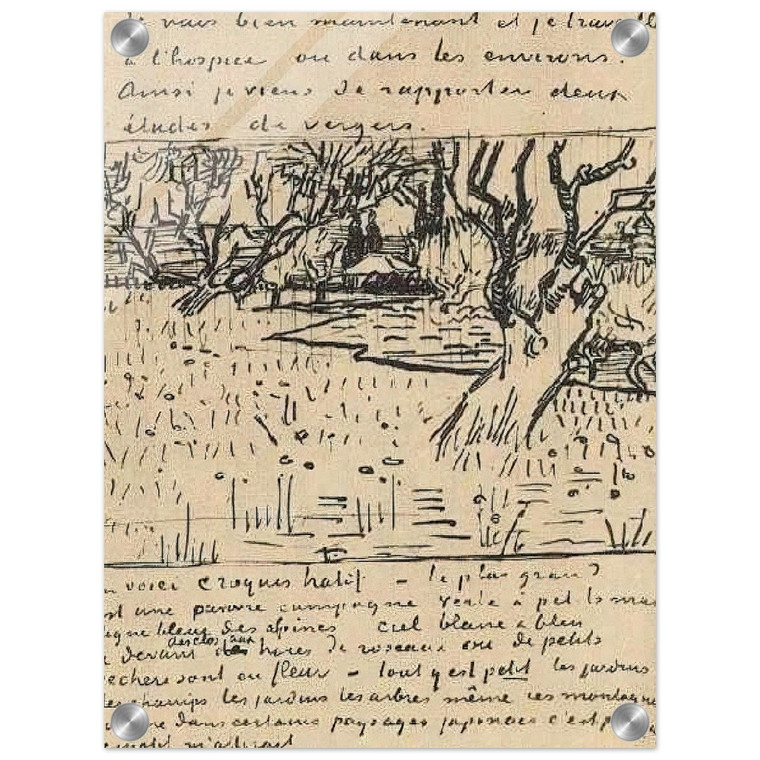 je vais bien maintenant et je travaille
à l'hospice ou dans les environs.
Ainsi je viens de rapporter deux
études de vergers.
voici croquis hatif – le plus grand
est une pauvre campagne verte à petits mas
ligne bleue des alpines ciel blanc & bleu
des clos aux
devant haies de roseaux ou de petits
pechers sont en fleur – tout y est petit les jardins
les champs les jardins les arbres même ces montagnes
comme dans certains paysages japonais c'est p
m'attirait